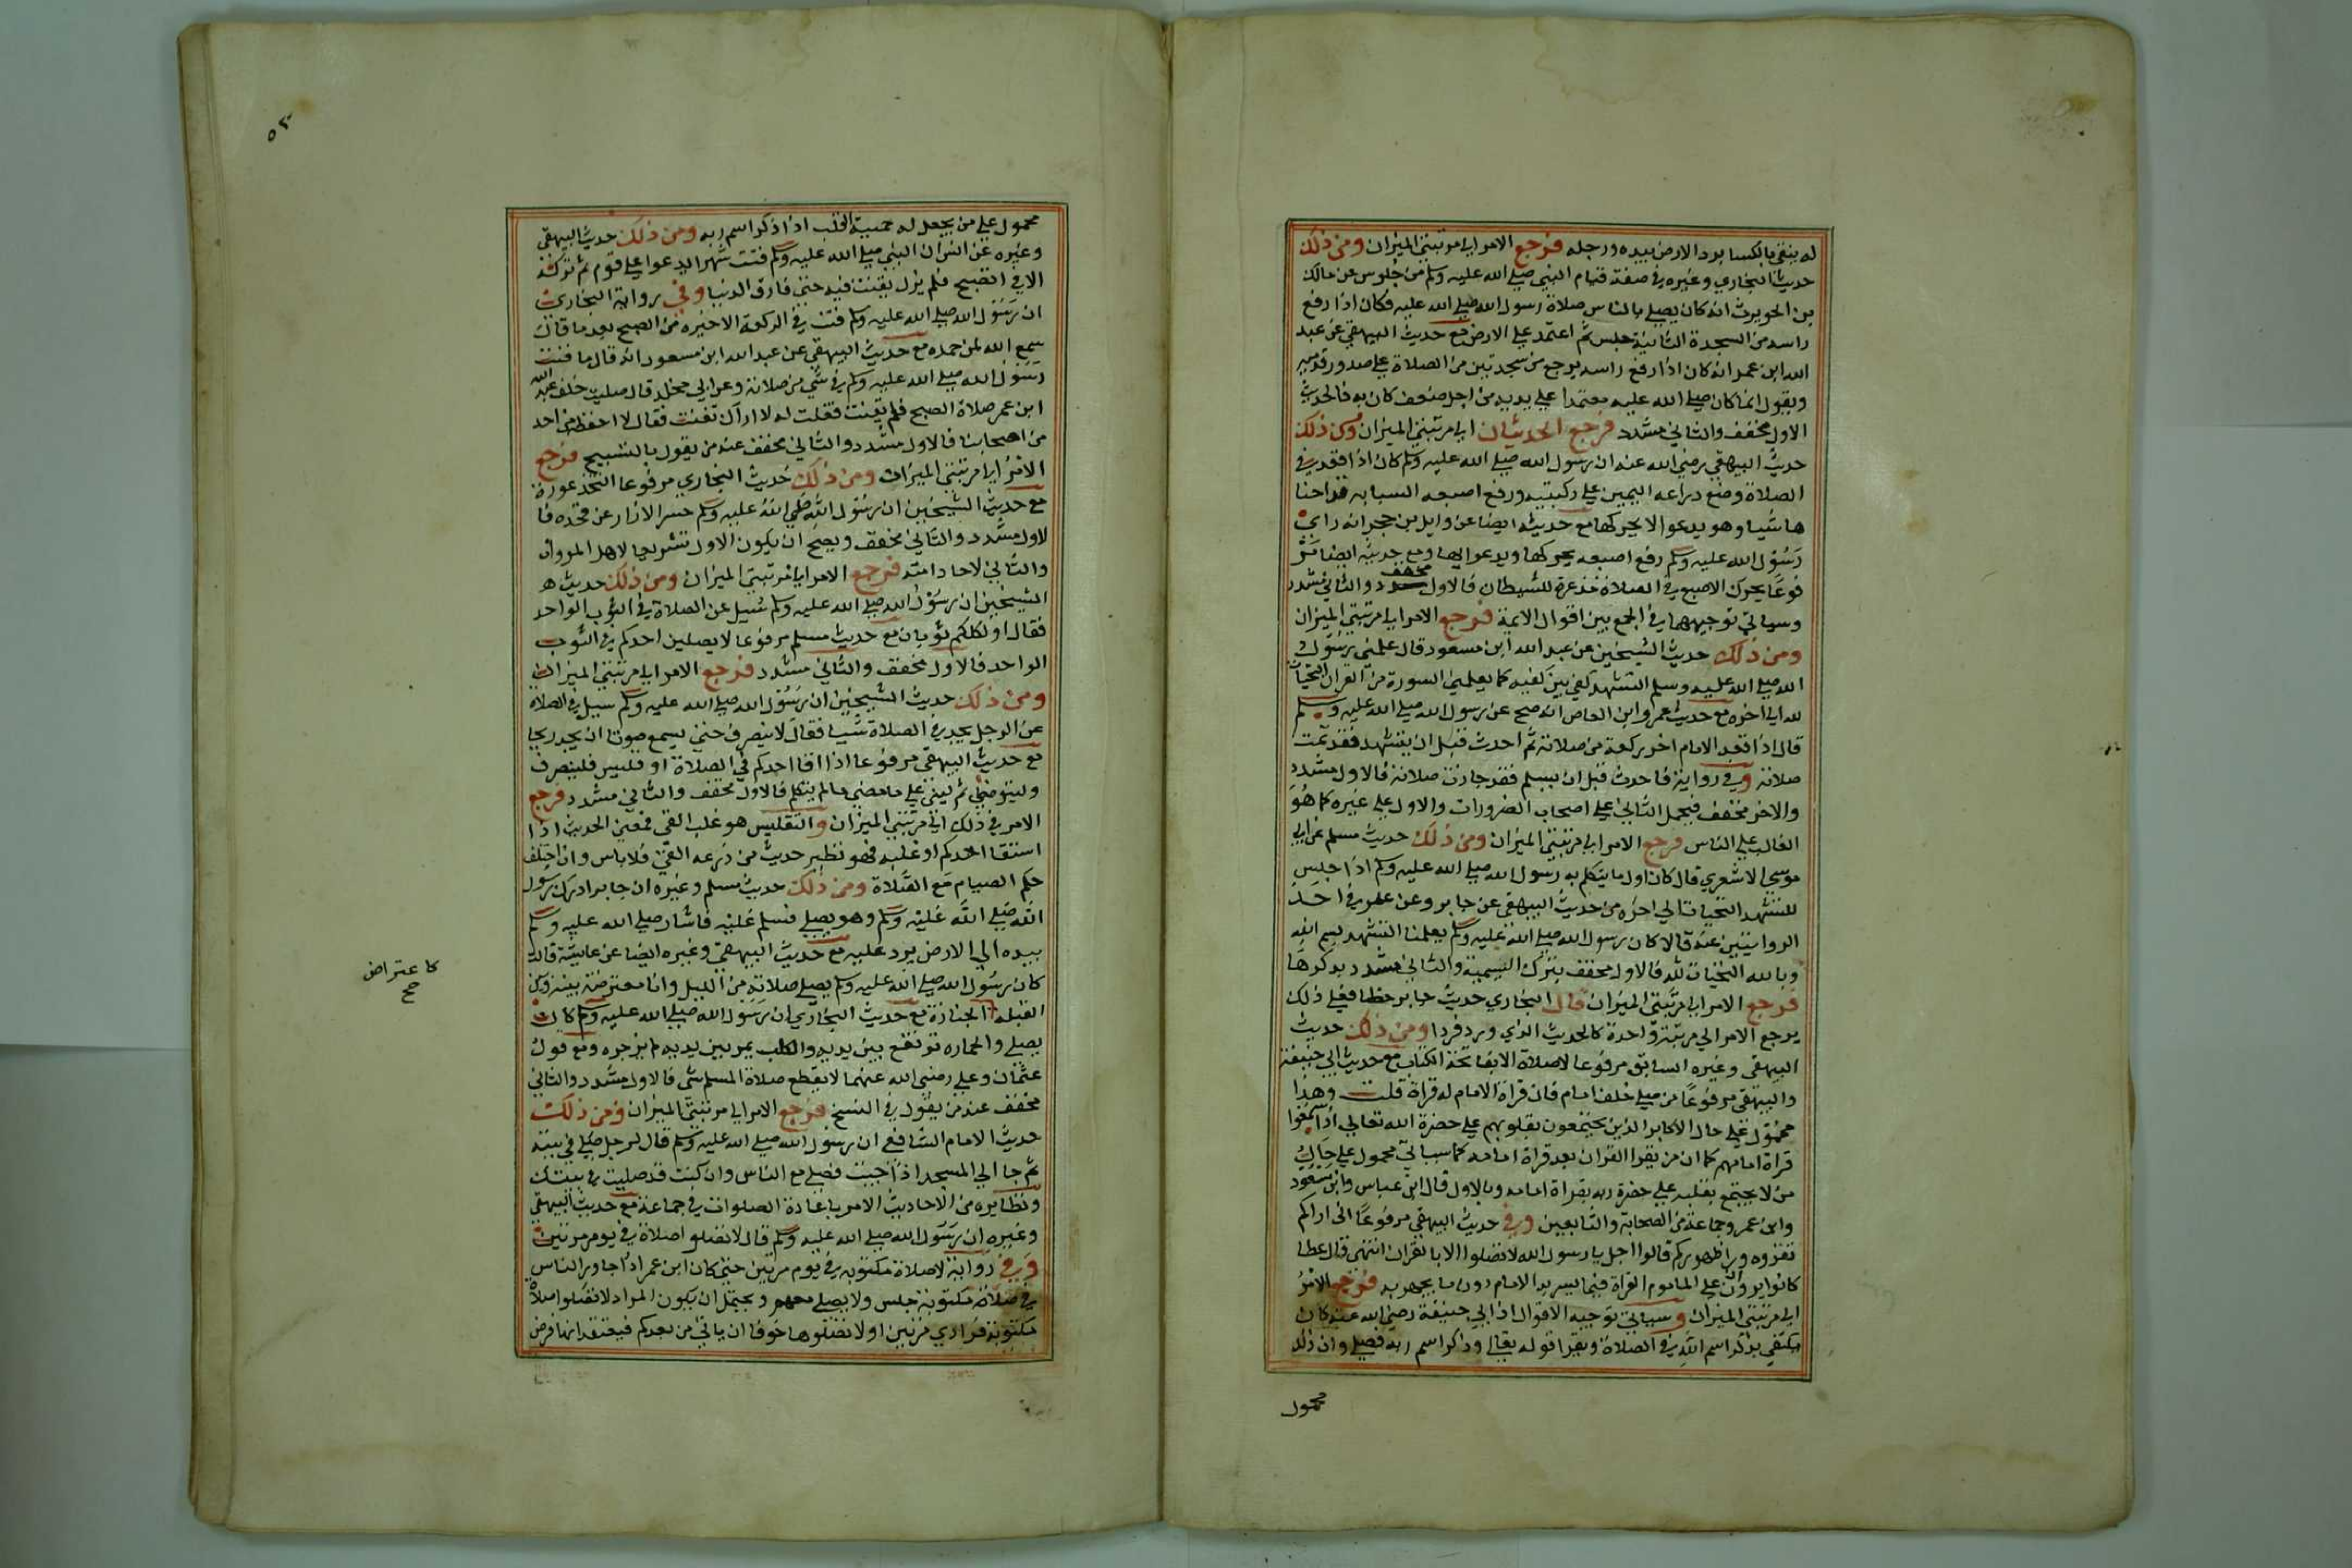 له يتقي بالكسا برد الارض بيده ورجله فرجع الامر الي مرتبتي الميزان ومن ذلك
حديث البخاري وغيره في صفة قيام النبي صلي الله عليه وسلم من جلوس عن مالك
بن الحويرث انه كان يصلي بالناس صلاة رسول الله صلي الله عليه فكان اذا رفع
راسه من السجدة الثانية جلس ثم اعتمد علي الارض مع حديث البيهقي عن عبد
الله ابن عمر انه كان اذا رفع راسه يرجع من سجدتين من الصلاة علي صدور قدميه
ويقول انما كان صلي الله عليه معتمدا علي يديه من اجل ضعف كان به فالحديث
الاول مخفف والثاني مشدد فرجع الحديثان الي مرتبتي الميزان ومن ذلك
حديث البيهقي رضي الله عنه ان رسول الله صلي الله عليه وسلم كان اذا قعد في
الصلاة وضع دراعه اليمين علي ركبتيه ورفع اصبعه السبابه قد احنا
ها شيا وهو يدعوا لا يحركها مع حديثه ايضا عن وايل بن حجر انه راي
رسول الله عليه وسلم رفع اصبعه يحركها ويدعوا بها ومع حديثه ايضا مر
فوعا يحرك الاصبع في الصلاة مذعرة للشيطان فالاول مخفف والثاني مشدد
وسياتي توجيهها في الجمع بين اقوال الايمة فرجع الامر الي مرتبتي الميزان
ومن ذلك حديث الشيخين عن عبد الله ابن مسعود قال علمني رسول
الله صلي الله عليه وسلم التشهد كفي بين كفيه كما يعلمني السورة من القران التحيات
لله الي اخره مع حديث عمرو ابن العاص انه صح عن رسول الله صلي الله عليه وسلم
قال اذا قعد الامام اخر ركعة من صلاته ثم احدث قبل ان يتشهد فقد تمت
صلاته وفي رواية فاحدث قبل ان يسلم فقد جازت صلاته فالاول مشدد
والاخر مخفف فيحمل الثاني علي اصحاب الضرورات والاول علي غيره كما هو
الغالب علي الناس فرجع الامر الي مرتبتي الميزان ومن ذلك حديث مسلم عن ابي
موسي الاشعري قال كان اول ما يتكلم به رسول الله صلي الله عليه وسلم اذا جلس
للتشهد التحيات الي اخره من حديث البيهقي عن جابر وعن عمر في احد
الروايتين عنه قالا كان رسول الله صلي الله عليه وسلم يعلمنا التشهد بسم الله
وبالله التحيات لله فالاول مخفف بترك التسمية والثاني مشدد بذكرها
فرجع الامر الي مرتبتي الميزان قال البخاري حديث جابر خطا فعلي ذلك
يرجع الامر الي مرتبة واحدة كالحديث الذي ورد فردا ومن ذلك حديث
البيهقي وغيره السابق مرفوعا لا صلاة الا بفاتحة الكتاب مع حديث ابي حنيفة
والبيهقي مرفوعا من صلي خلف امام فان قراة الامام له قراة قلت وهذا
محمول علي حال الاكابر الذين يجتمعون بقلوبهم علي حضرة الله تعالي اذا سمعوا
قراة امامهم كما ان من يقرا القران بعد قراة امامه كما سياتي محمول علي حال
من لا يجتمع بقلبه علي حضرة ربه بقراة امامه وبالاول قال ابن عباس وابن مسعود
وابن عمر وجماعة من الصحابة والتابعين وفي حديث البيهقي مرفوعا اني اراكم
تقروه ورا ظهوركم قالوا اجل يا رسول الله لا تفعلوا الا بالقران انتهي قال عطا
كانوا يروا ان علي الماموم القراة فيما يسر به الامام دون ما يجهر به فرجع الامر
الي مرتبتي الميزان وسياتي توجيه الاقوال اذ ابي حنيفة رضي الله عنه كان
يكتفي بذكر اسم الله في الصلاة ويقرا قوله تعالي وذكر اسم ربه فصلي وان ذلك
محمول
٥٢
محمول علي من يحعل له جمعية القلب اذا ذكر اسم ربه ومن ذلك حديث البيهقي
وغيره عن انس ان النبي صلي الله عليه وسلم قنت شهرا يدعوا علي قوم ثم تركه
الا في الصبح فلم يزل يقنت فيه حتي فارق الدنيا وفي رواية البخاري
ان رسول الله صلي الله عليه وسلم قنت في الركعة الاخيرة من الصبح بعد ما قال
سمع الله لمن حمده مع حديث البيهقي عن عبد الله ابن مسعود انه قال ما قنت
رسول الله صلي الله عليه وسلم في شي من صلاته وعن ابي مخلد قال صليت خلف عبد الله
ابن عمر صلاة الصبح فلم يقنت فقلت له لا اراك تقنت فقال لا احفظه من احد
من اصحابنا فالاول مشدد والثاني مخفف عند من يقول بالتسبيح فرجع
الامر الي مرتبتي الميزان ومن ذلك حديث البخاري مرفوعا الفخذ عورة
مع حديث الشيخين ان رسول الله صلي الله عليه وسلم حسر الازار عن فخذه فا
لاول مشدد والثاني مخفف ويصح ان يكون الاول تشريعا لاهل المرواة
والثاني لاحاد امته فرجع الامر الي مرتبتي الميزان ومن ذلك حديث
الشيخين ان رسول الله صلي الله عليه وسلم سيل عن الصلاة في الثوب الواحد
فقال اولكلكم ثوبان مع حديث مسلم مرفوعا لا يصلين احدكم في الثوب
الواحد فالاول مخفف والثاني مشدد فرجع الامر الي مرتبتي الميزان
ومن ذلك حديث الشيخين ان رسول الله صلي الله عليه وسلم سيل في الصلاه
عن الرجل يجد في الصلاة شيا فقال لا ينصرف حتي يسمع صوتا ان يجد ريحا
مع حديث البيهقي مرفوعا اذا اقا احدكم في الصلاة او قليس فلينصرف
وليتوضي ثم ليبني علي ما مضي ما لم يتكلم فالاول مخفف والثاني مشدد فرجع
الامر في ذلك الي مرتبتي الميزان والتقليس هو غلب القي فمعني الحديث اذا
استقا احدكم او غلبه فهو نظير حديث من ذرعه القي فلا باس وان اختلف
حكم الصيام مع الصلاة ومن ذلك حديث مسلم وغيره ان جابر ادرك رسول
الله صلي الله عليه وسلم وهو يصلي فسلم عليه فاشار صلي الله عليه وسلم
بيده الي الارض يرد عليه مع حديث البيهقي وغيره ايضا عن عايشة قالت
كان رسول الله صلي الله عليه وسلم يصلي صلاته من الليل وانا معترضة بينه وبين
القبلة الجنازة مع حديث البخاري ان رسول الله صلي الله عليه وسلم كان
يصلي والحماره ترتفع بين يديه والكلب يمر بين يديه لم يزجره ومع قول
عثمان وعلي رضي الله عنهما لا يقطع صلاة المسلم شي فالاول مشدد والثاني
مخفف عند من يقول في النسخ فرجع الامر الي مرتبتي الميزان ومن ذلك
حديث الامام الشافعي ان رسول الله صلي الله عليه وسلم قال لرجل صلي في بيته
ثم جا الي المسجد اذا جيت فصلي مع الناس وان كنت قد صليت في بيتك
ونظايره من الاحاديث الامر باعادة الصلوات في جماعة مع حديث البيهقي
وغيره ان رسول الله صلي الله عليه وسلم قال لا تصلو صلاة في يوم مرتين
وفي رواية لا صلاة مكتوبه في يوم مرتين حتي كان ابن عمر اذا جا ور الناس
في صلاة مكتوبة جلس ولا يصلي معهم ويحتمل ان يكون المراد لا تصلوا صلاة
مكتوبة فرادي مرتين او لا تصلوها خوفا ان ياتي من بعدكم فيعتقد انها فرض
كا عتراض
صح